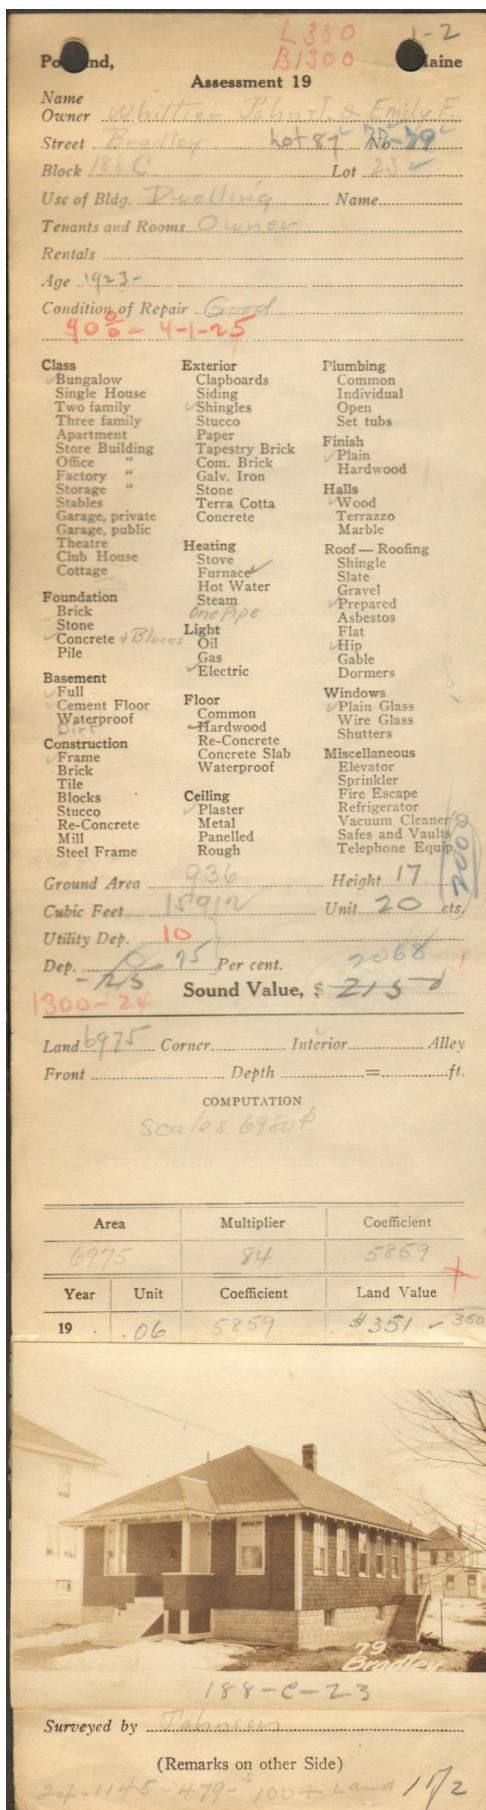 L 350 1-2
B 1300
Portland, Maine
Assessment 19
Name
Owner Whittier John J. & Emily F.
Street Bradley Lot 87 No. 77-79
Block 188 C Lot 23
Use of Bldg. Dwelling Name
Tenants and Rooms Owner
Rentals
Age 1923-
Condition of Repair Good
90% - 4-1-25
Class
Bungalow
Single House
Two family
Three family
Apartment
Store Building
Office "
Factory "
Storage "
Stables
Garage, private
Garage, public
Theatre
Club House
Cottage
Foundation
Brick
Stone
Concrete & Blocks
Pile
Basement
Full
Cement Floor
Waterproof
Dirt
Construction
Frame
Brick
Tile
Blocks
Stucco
Re-Concrete
Mill
Steel Frame
Exterior
Clapboards
Siding
Shingles
Stucco
Paper
Tapestry Brick
Com. Brick
Galv. Iron
Stone
Terra Cotta
Concrete
Heating
Stove
Furnace
Hot Water
Steam
One Pipe
Light
Oil
Gas
Electric
Floor
Common
Hardwood
Re-Concrete
Concrete Slab
Waterproof
Ceiling
Plaster
Metal
Panelled
Rough
Plumbing
Common
Individual
Open
Set tubs
Finish
Plain
Hardwood
Halls
Wood
Terrazzo
Marble
Roof — Roofing
Shingle
Slate
Gravel
Prepared
Asbestos
Flat
Hip
Gable
Dormers
Windows
Plain Glass
Wire Glass
Shutters
Miscellaneous
Elevator
Sprinkler
Fire Escape
Refrigerator
Vacuum Cleaner
Safes and Vaults
Telephone Equip.
2000
Ground Area 936 Height 17
Cubic Feet 15912 Unit 20 cts.
Utility Dep. 10
Dep. 75 Per cent. 2068
1300-24 Sound Value, $ 2150
Land 6975 Corner Interior Alley
Front Depth = ft.
COMPUTATION
Scales 6980
Area Multiplier Coefficient
6975 84 5859
Year Unit Coefficient Land Value
19 .06 5859 $351 350
79
Bradley
188-C-23
Surveyed by Johnson
(Remarks on other Side)
24-1145-479- 100 + Land 11/2